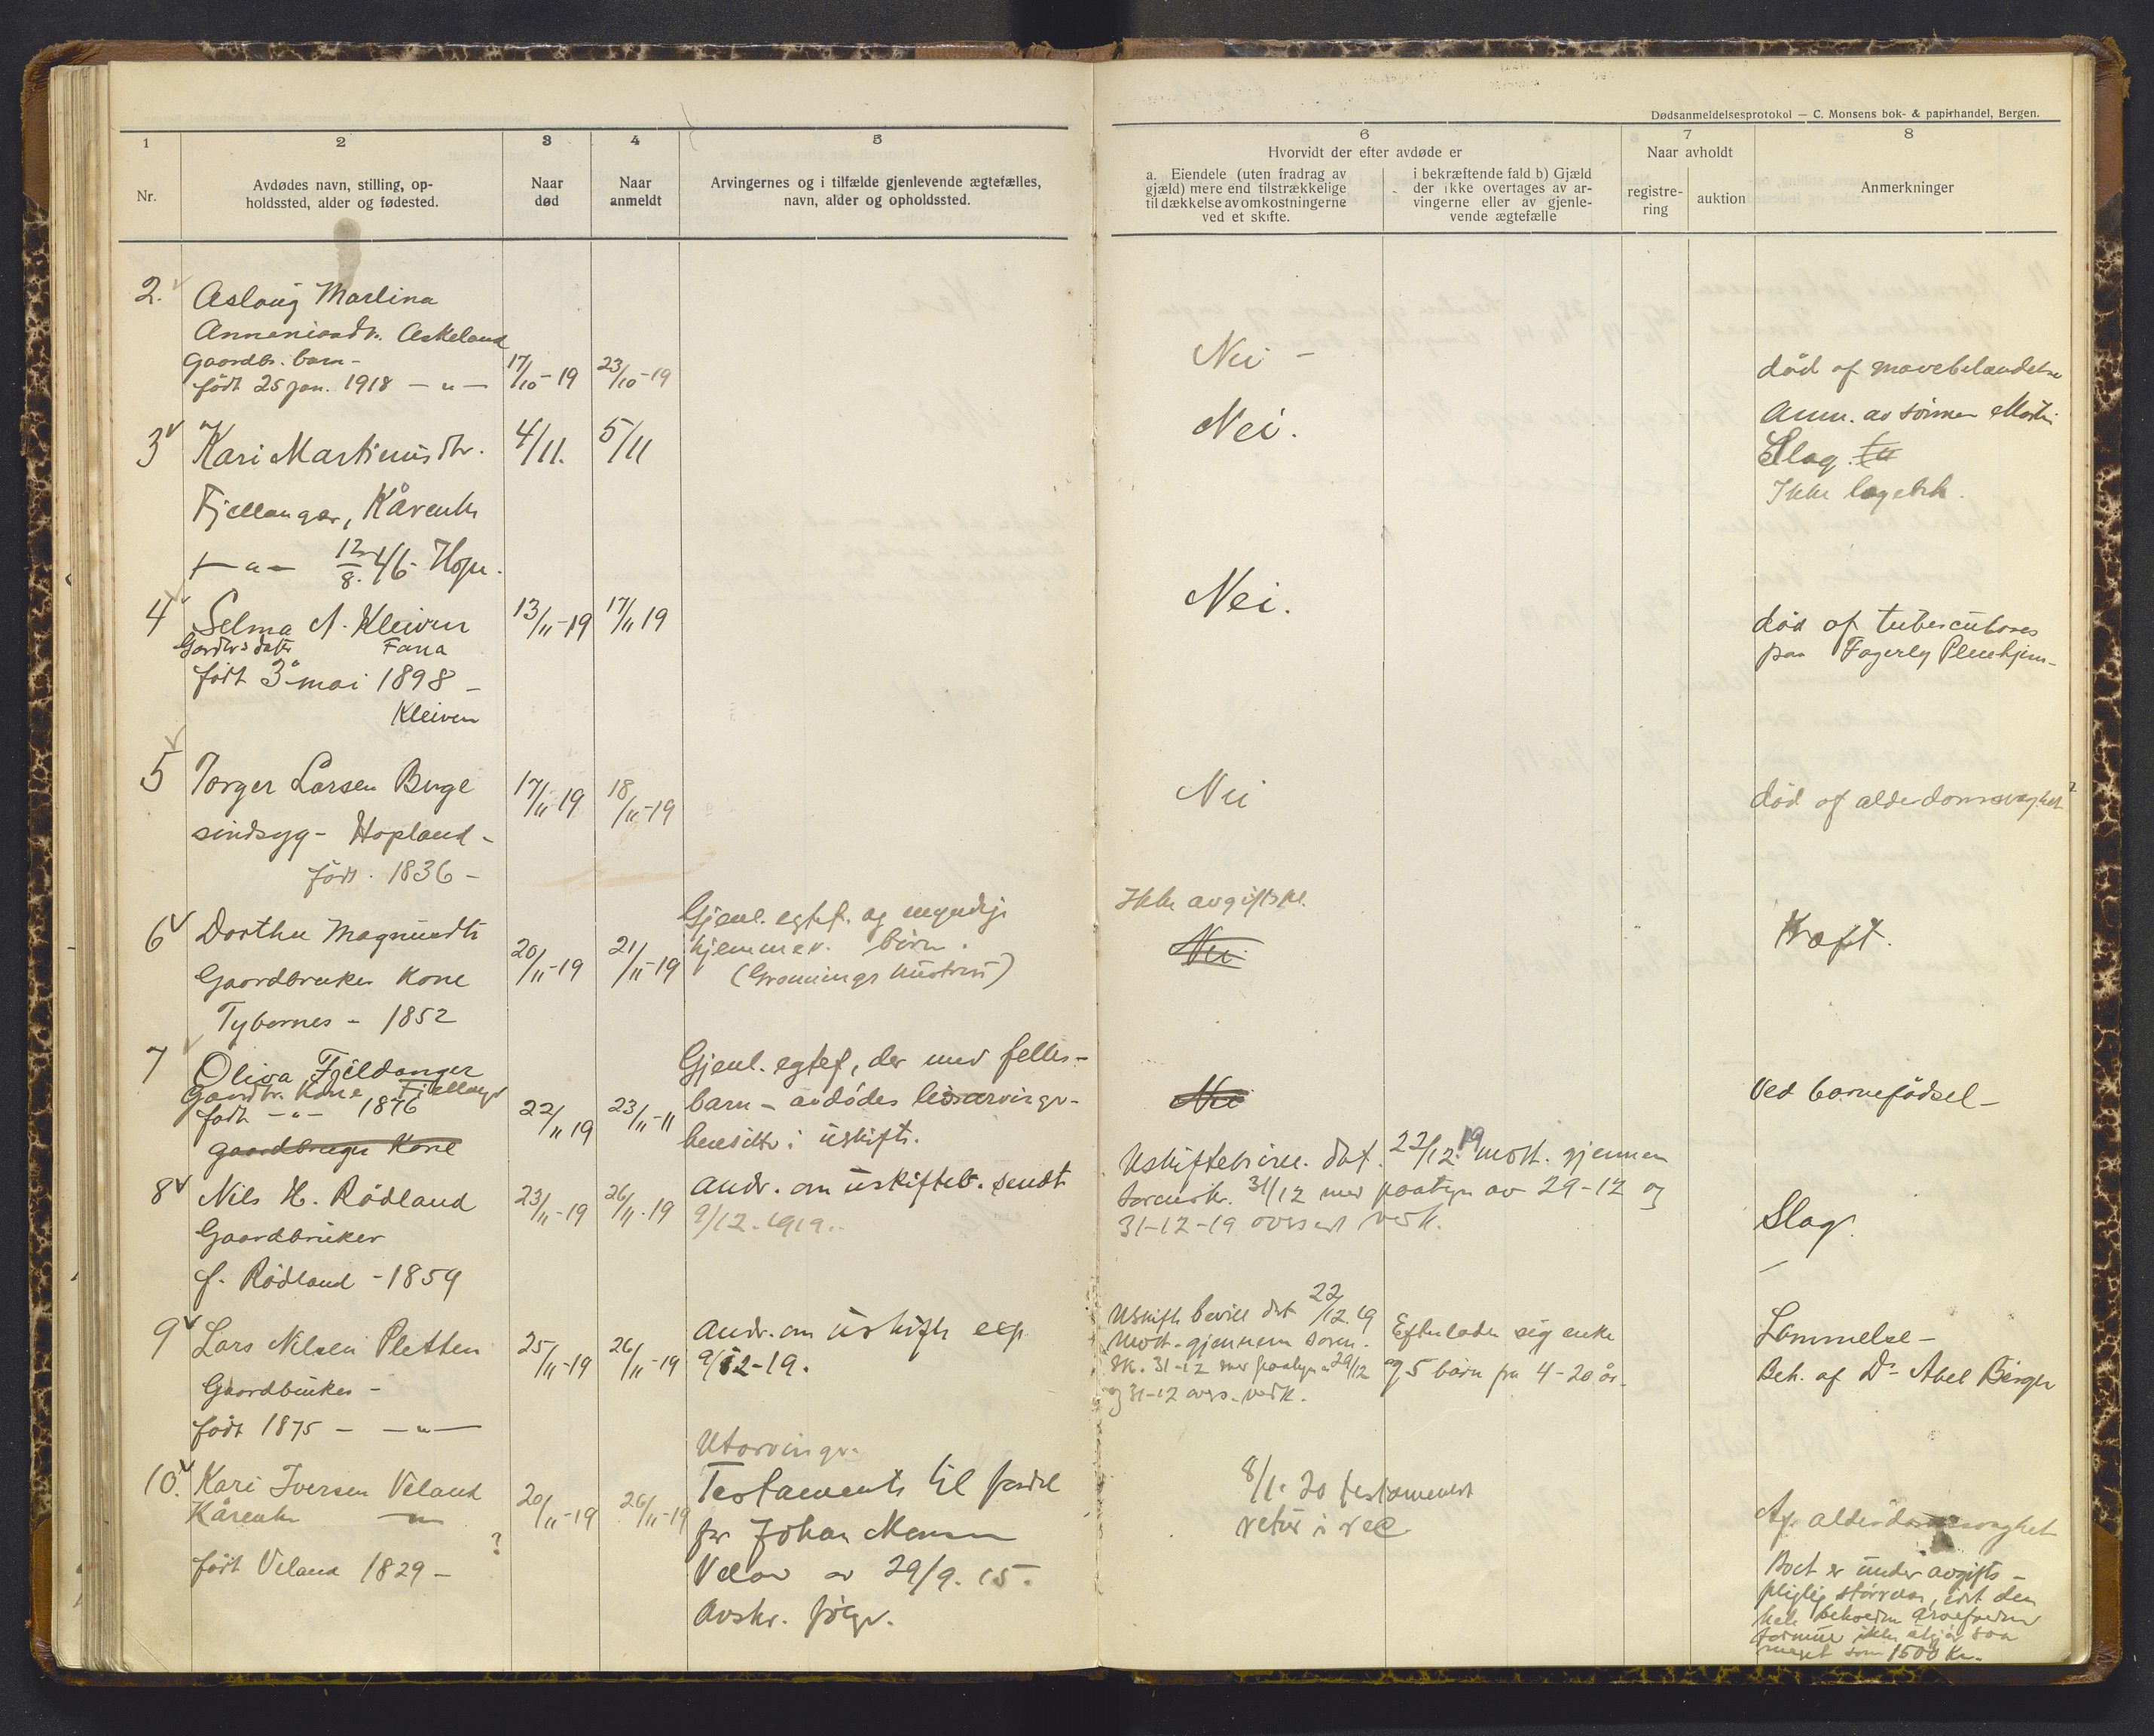 Dødsanmeldelsesprotokol — C. Monsens bok- & papirhandel, Bergen.
1
2
3
4
5
6
7
8
Nr.
Avdødes navn, stilling, op-
holdssted, alder og fødested.
Naar
død
Naar
anmeldt
Arvingernes og i tilfælde gjenlevende ægtefælles,
navn, alder og opholdssted.
Hvorvidt der efter avdøde er
a. Eiendele (uten fradrag av
gjæld) mere end tilstrækkelige
til dækkelse av omkostningerne
ved et skifte.
i bekræftende fald b) Gjæld
der ikke overtages av ar-
vingerne eller av gjenle-
vende ægtefælle
Naar avholdt
registre-
ring
auktion
Anmerkninger
2. Aslaug Marlina
Askeland
Gaardbr. barn -
født 25 jan. 1918 — " —
17/10-19
23/10-19
Nei -
død af
3 Kari Martinusdtr.
Fjellanger, Kårenke
— " — 12/8.46 Hope.
4/11.
5/11
Nei.
Anm. av sønnen
Slag.
Ikke
4 Selma A. Kleiven
Fana
født 3 mai 1898 -
Kleiven
13/11-19
17/11 19
Nei.
død of tuberculoses
paa Fagerly Pleiehjem-
5 Torger Larsen Berge
sindsyg - Hopland -
født. 1836 -
17/11-19
18/11-19
Nei
død of alderdomsvaghet
6 Dorthe Magnusdtr
Gaardbruker Kone
- 1852
20/11-19
21/11-19
Gjenl. egtef. og myndige
hjemmev. børn.
Ikke avgiftspl.
Nei
Kræft.
7 Oliva Fjeldanger
Gaardbr. Kone
født - " - 1876
gaardbruger Kone
22/11 19
23/11-11
Gjenl. egtef, der med felles-
barn - avdødes livsarvinger -
i uskifte.
Nei
Ved barnefødsel -
8 Nils H. Rödland
Gaardbruker
f. Rödland - 1859
23/11-19
26/11-19
Andr. om uskifteb. sendt
9/12-1919.
dat. 22/12.19 mott. gjennem
31/12 med paategn av 29-12 og
31-12-19 oversendt vedk.
Slag.
9 Lars Nilsen Pletten
Gaardbruker -
født 1875 - — " —
25/11-19
26/11-19
Andr. om uskifte exp.
9/12-19.
Uskifte bevill. dat 22/12.19
Mott. gjennem soren.
sk. 31-12 med paategn. 29/12
og 31-12 overs. vedk.
Efterlader sig enke
og 5 børn fra 4-20 år -
Lammelse -
Beh. af Dr. Abel Berger
10. Kari Iversen Veland
Kårenke — " —
født Veland 1829 - ?
20/11-19
26/11-19
Utarvinger.
Testamente til fordel
for Johan Monsen
av 29/9.15.
Avskr. følger.
8/1.20 testament
retur i rec
Af alderdomssvaghet
Boet er under avgifts-
pligtig størrelse, idet den
hele
formue ikke utgjør saa
meget som 1500 Kr.